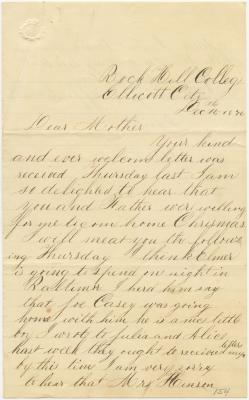 Rock Hill College
Ellicott City
Dec 16th 1870
Dear Mother
Your kind
and ever welcome letter was
received Thursday last I am
so delighted to hear that
you and Father ever willing
for me to com home Chrismas
I will meat you the follow
ing Thursday I think Elmer
is going to spend on night in
Baltimore I herd him say
that Joe Casey was going
home with him he is a nice little
boy I wrote to Julia and Alice
last week they ought to received my letter
by this time I am very sorry
to hear that Mrs Hinson
154